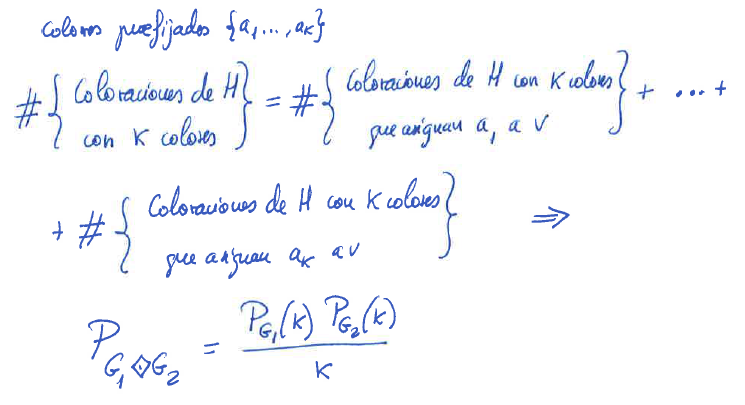 Colores prefijados {a₁,...,aₖ}
#{Coloraciones de H con K colores} = #{Coloraciones de H con K colores que asignan a₁ a v} + ... +
+ #{Coloraciones de H con K colores que asignan aₖ a v} ⇒
P_{G₁◇G₂} = P_{G₁}(K) P_{G₂}(K) / K